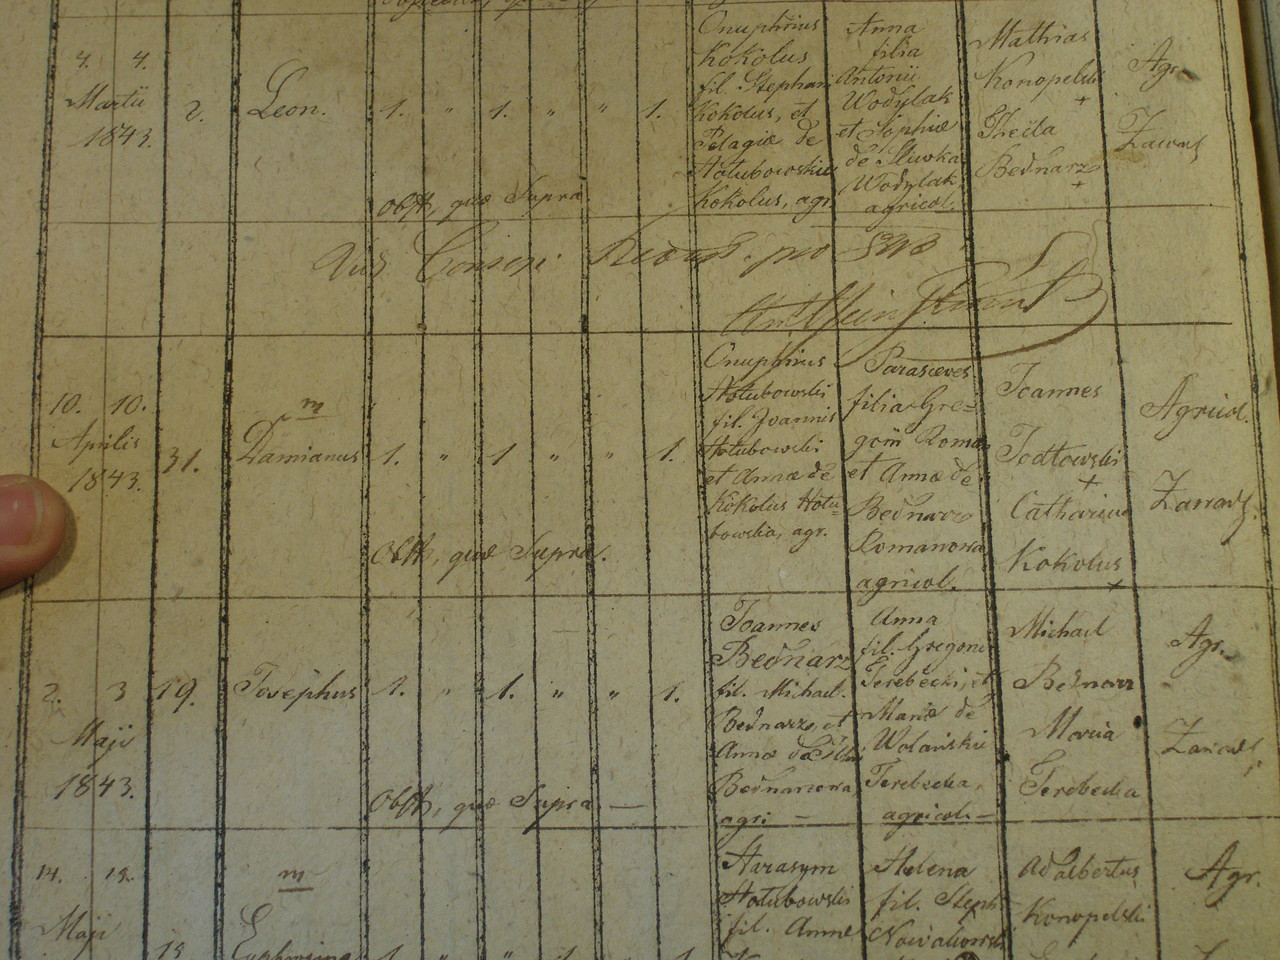 4. 4.
Martii
1843.
2.
Leon.
1. " 1. " " 1.
Obst, quae Supra.
Onuphrius
Kokolus
fil. Stephani
Kokolus, et
Pelagiae de
Hołubowskie
Kokolus, agr.
Anna
filia
Antonii
Wodylak
et Sophiae
de Sliwka
Wodylak
agricol.
Mathias
Konopelski
+
Thecla
Bednarz
+
Agr.
Zawads
pro 843
10. 10.
Aprilis
1843.
31.
m
Damianus
1. " 1 " " 1.
Obst, quae Supra.
Onuphrius
Hołubowski
fil. Joannis
Hołubowski
et Annae de
Kokolus Hołu=
bowska, agr.
Parasceves
filia Gre=
gorii Roman
et Annae de
Bednarz
Romanowa
agricol.
Joannes
Jodłowski
+
Catharina
Kokolus
+
Agricol.
Zawads.
2. 3
Maji
1843.
19.
Josephus
1. " 1. " " 1.
Obst, quae Supra —
Joannes
Bednarz
fil. Michael.
Bednarz et
Annae de
Bednarowa
agri —
Anna
fil. Gregorii
Terebecki, et
Mariae de
Wolańskie
Terebecka,
agricol. —
Michael
Bednarz
Maria
Terebecka
Agr.
Zawads.
14. 15.
Maji
15
m
Euphrosina
1. " " 1 " 1
Harasym
Hołubowski
fil. Annae
Helena
fil. Steph
Nowakowski
Adalbertus
Konopelski
Agr.